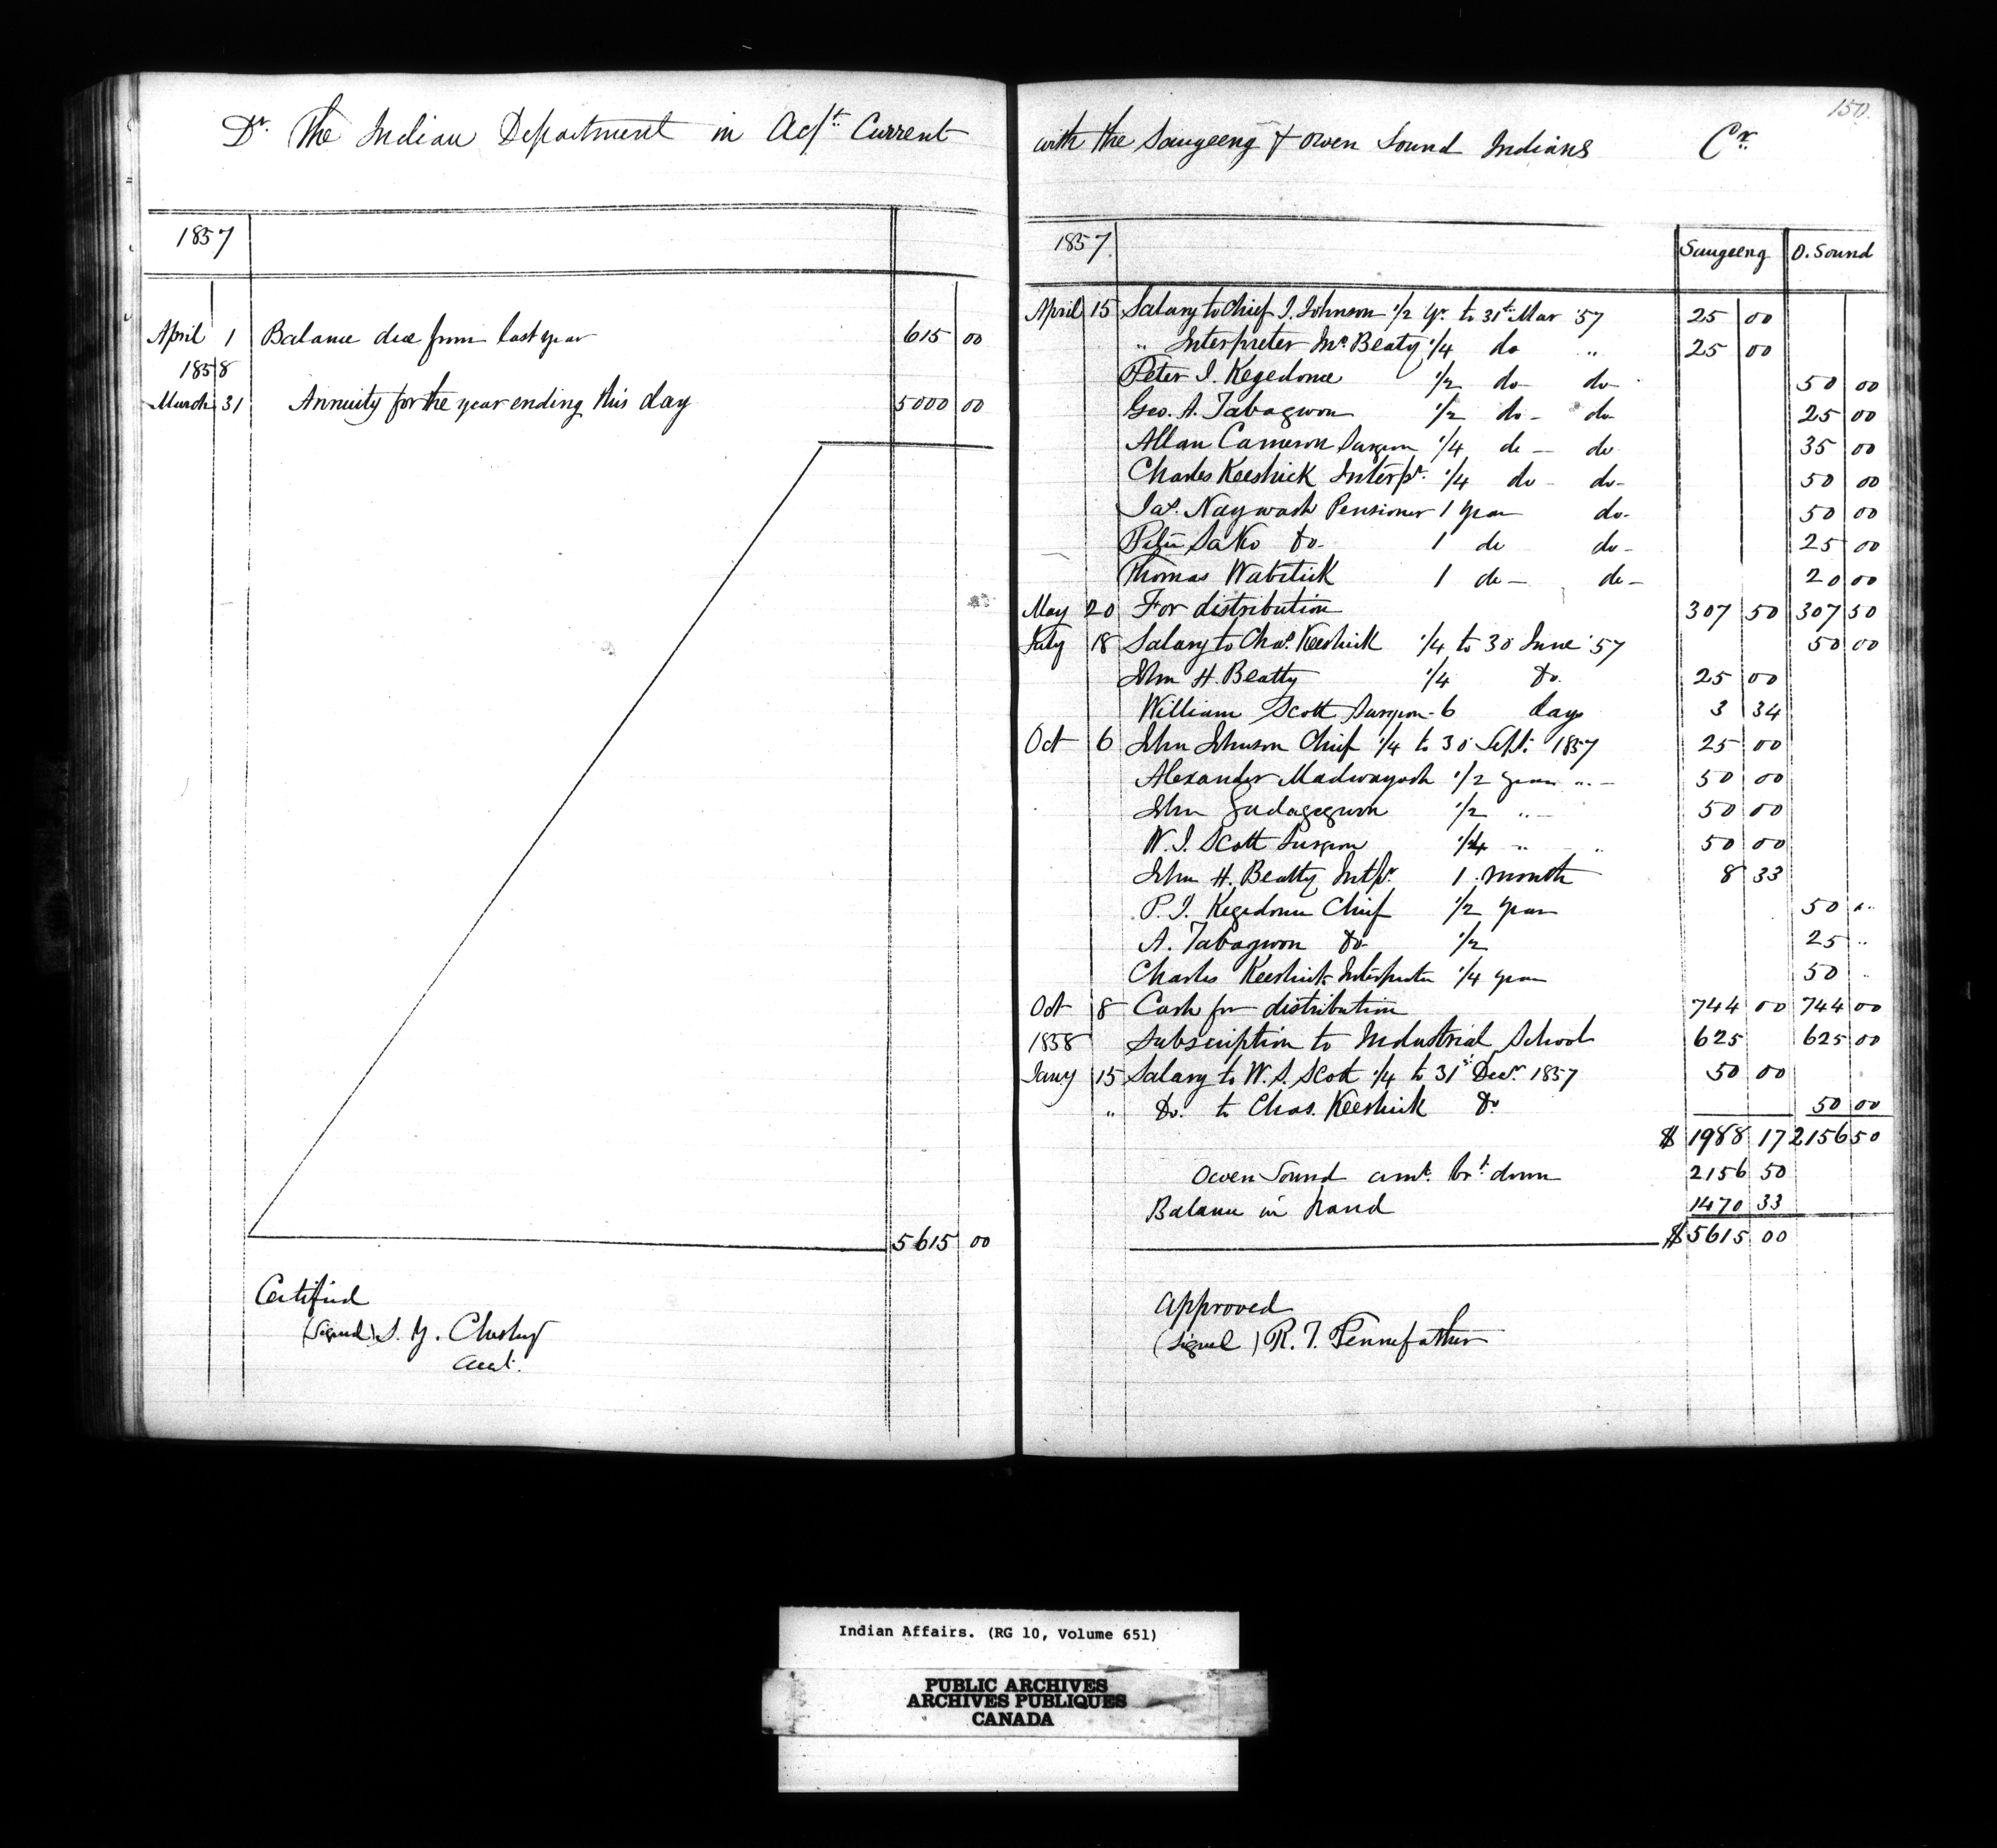 Dr. The Indian Department in Acft. Current
1857
April 1 Balance due from last year 615 00
1858
March 31 Annuity for the year ending this day 5000 00
5615 00
Certified
(Signed) S. Y. Chesley
Acct.
150.
with the Saugeeng & Owen Sound Indians Cr.
1857. Saugeeng O. Sound
April 15 Salary to Chief J. Johnson 1/2 Yr. to 31st Mar '57 25 00
" Interpreter Mr. Beaty 1/4 do " 25 00
Peter J. Kegedonce 1/2 do do 50 00
Geo. A. Tabagwon 1/2 do do 25 00
Allan Cameron Surgeon 1/4 do do 35 00
Charles Keeshick Interpr. 1/4 do do 50 00
Jas. Naywash Pensioner 1 Year do 50 00
Peter Sako Do. 1 do do 25 00
Thomas Wabetick 1 do do 20 00
May 20 For distribution 307 50 307 50
July 18 Salary to Chas. Keeshick 1/4 to 30 June '57 50 00
John H. Beatty 1/4 Do. 25 00
William Scott Surgeon 6 days 3 34
Oct 6 John Johnson Chief 1/4 to 30 Sept. 1857 25 00
Alexander Madwayosh 1/2 year " 50 00
John 1/2 " 50 00
W. S. Scott Surgeon 1/4 " " 50 00
John H. Beatty Intpr. 1 month 8 33
P. J. Kegedonce Chief 1/2 Year 50 "
A. Tabagwon Do. 1/2 25 "
Charles Keeshick Interpreter 1/4 year 50 "
Oct 8 Cash for distribution 744 00 744 00
1858 Subscription to Industrial School 625 625 00
Jany 15 Salary to W. S. Scott 1/4 to 31st Decr. 1857 50 00
" Do. to Chas. Keeshick Do. 50 00
$ 1988 17 2156 50
Owen Sound amt. brt. down 2156 50
Balance in hand 1470 33
$ 5615 00
Approved
(Signed) R. T. Pennefather
Indian Affairs. (RG 10, Volume 651)
PUBLIC ARCHIVES
ARCHIVES PUBLIQUES
CANADA